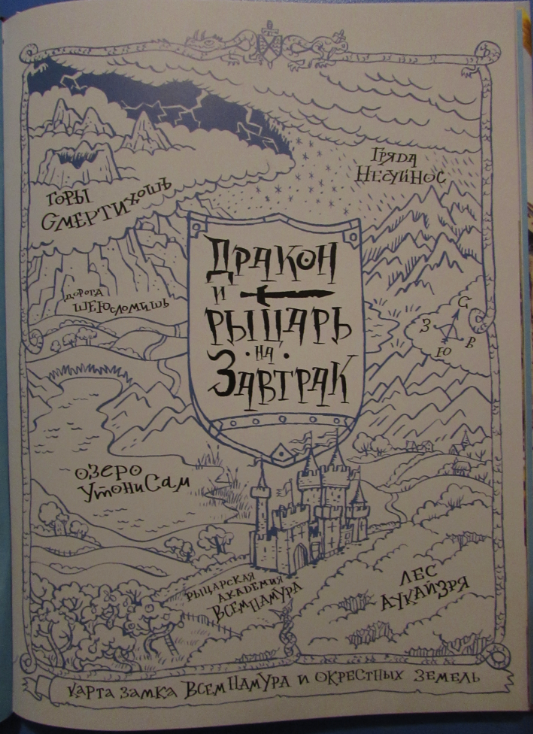 Горы
Смерти-хошь
Гряда
Несуйнос
Дракон
и
рыцарь
на
завтрак
дорога
Шеюсломишь
С
З
В
Ю
озеро
УтониСам
рыцарская
академия
ВсемПамура
Лес
Аукайзря
карта замка ВсемПамура и окрестных земель